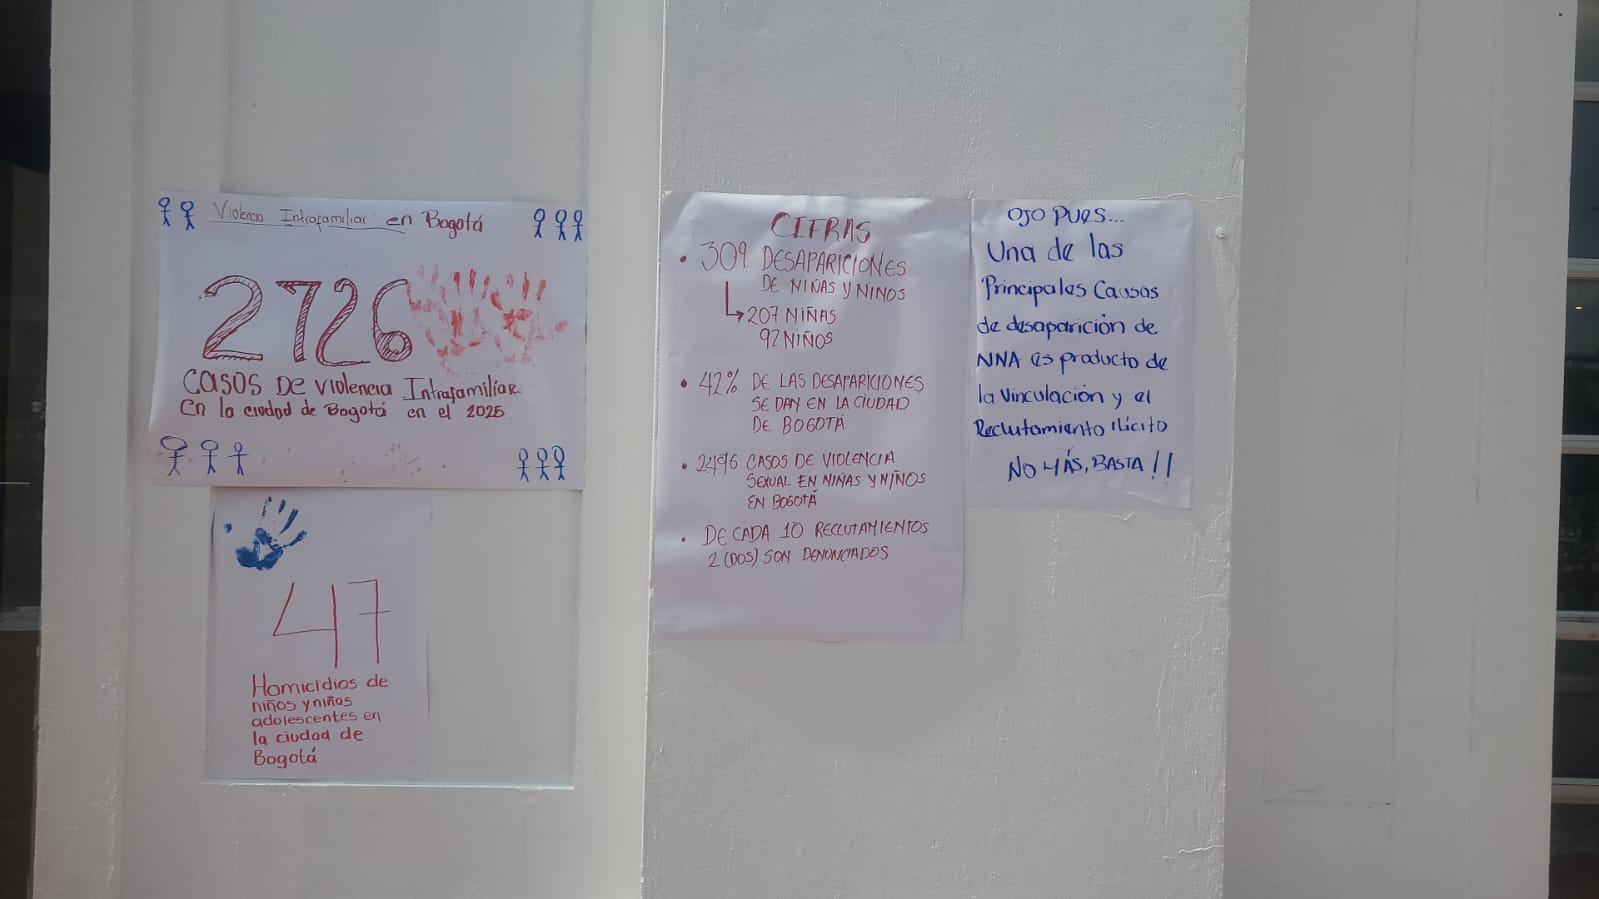 Violencia Intrafamiliar en Bogotá
2726
Casos De Violencia Intrafamiliar
En la ciudad de Bogotá en el 2025
47
Homicidios de
niños y niñas
adolescentes en
la ciudad de
Bogotá
CIFRAS
• 309 DESAPARICIONES
DE NIÑAS Y NIÑOS
↳ 207 NIÑAS
92 NIÑOS
• 42% DE LAS DESAPARICIONES
SE DAN EN LA CIUDAD
DE BOGOTÁ
• 2496 CASOS DE VIOLENCIA
SEXUAL EN NIÑAS Y NIÑOS
EN BOGOTÁ
• DE CADA 10 RECLUTAMIENTOS
2 (DOS) SON DENUNCIADOS
OJO PUES...
Una de las
Principales Causas
de desaparición de
NNA es producto de
la Vinculación y el
Reclutamiento ilícito
NO MÁS, BASTA !!